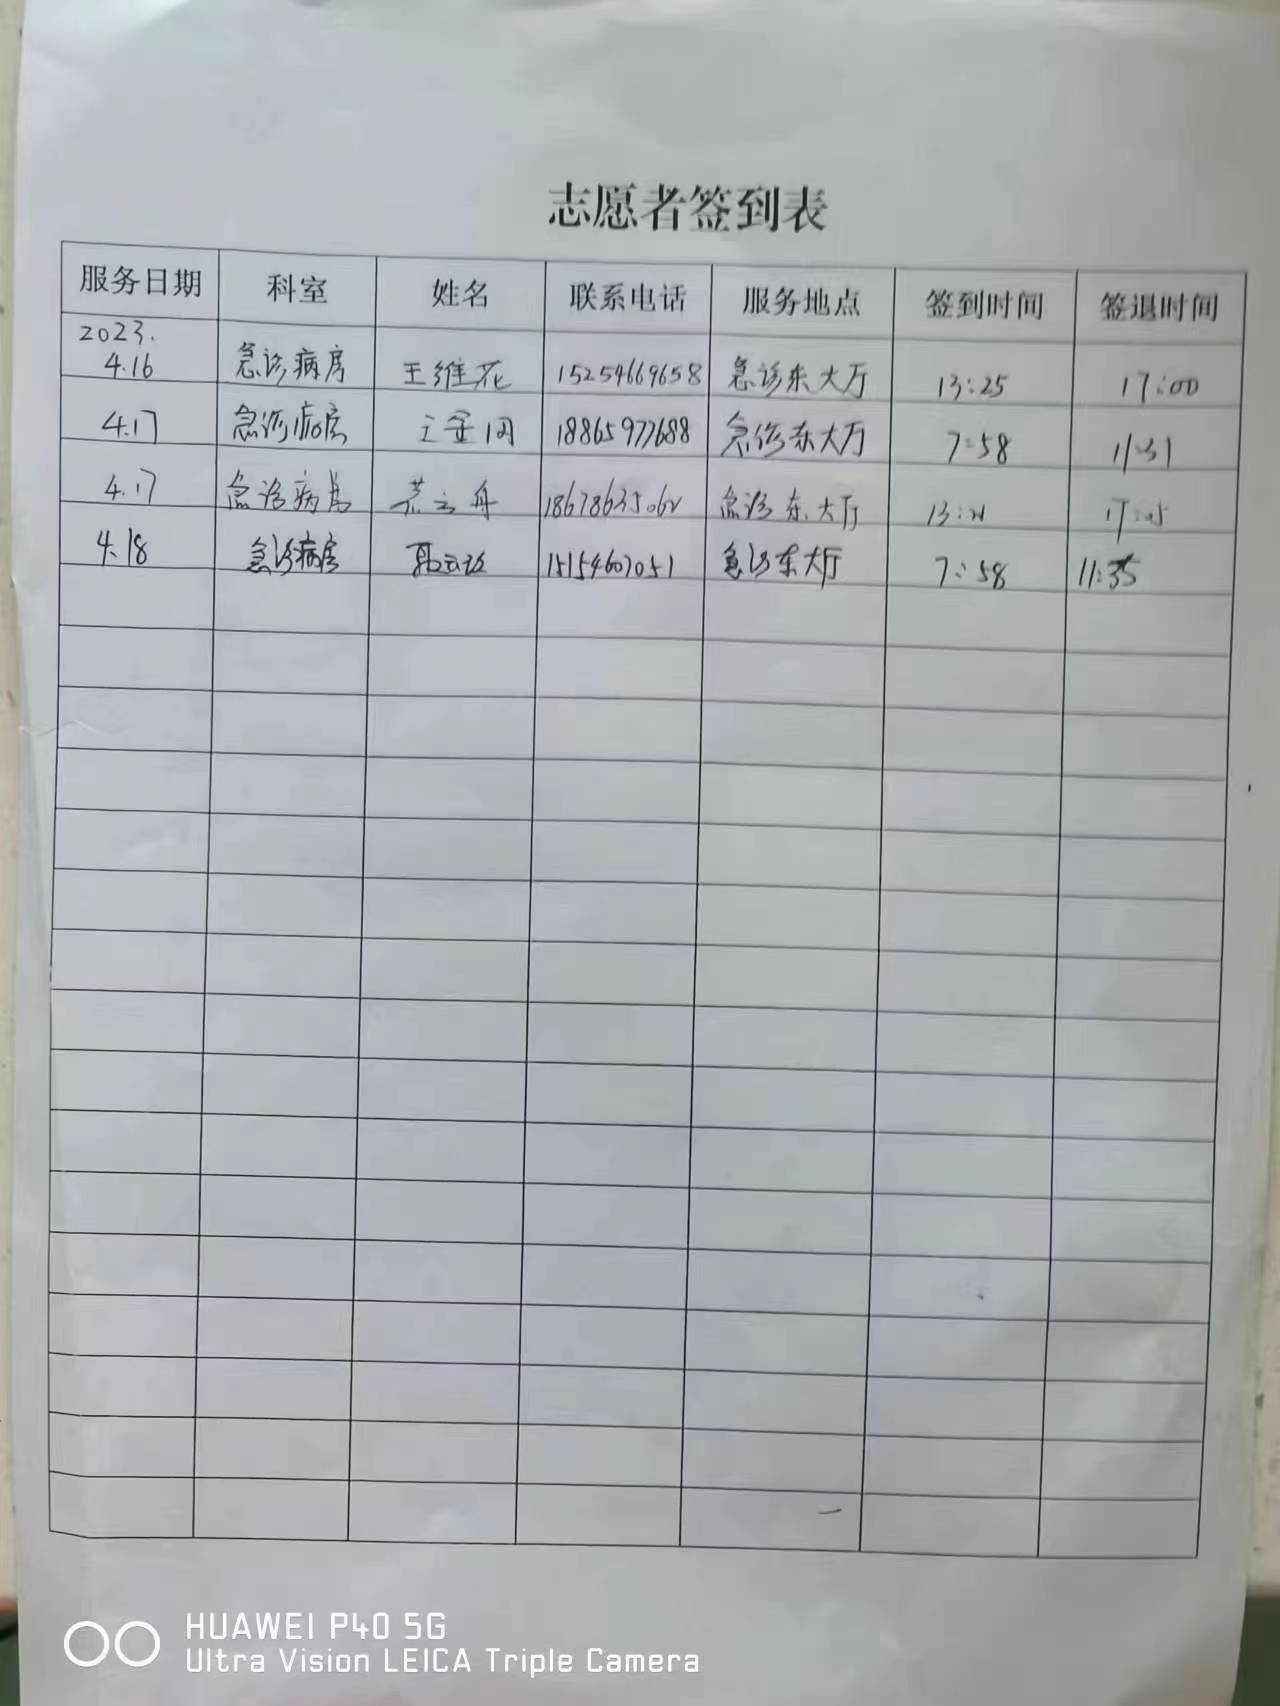 志愿者签到表
服务日期 科室 姓名 联系电话 服务地点 签到时间 签退时间
2023.
4.16 急诊病房 王维花 15254669658 急诊东大厅 13:25 17:00
4.17 急诊病房 18865977688 急诊东大厅 7:58 11:31
4.17 急诊病房 急诊东大厅
4.18 急诊病房 15154607051 急诊东大厅 7:58 11:35
HUAWEI P40 5G
Ultra Vision LEICA Triple Camera